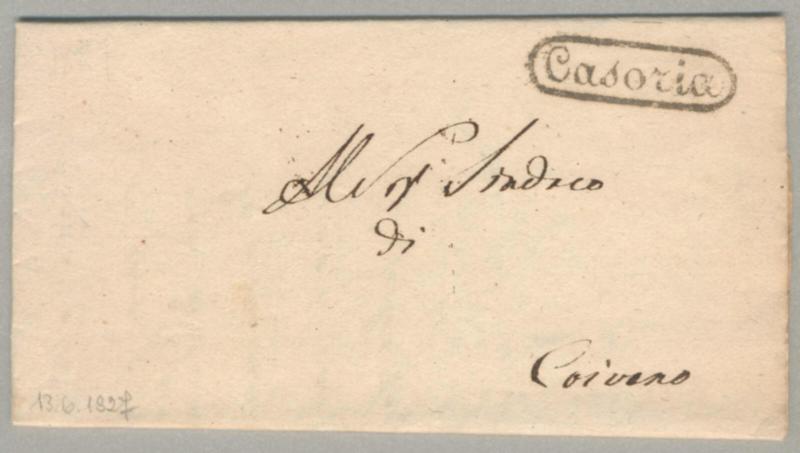 Casoria
Al Sig Sindaco
di
Caivano
13.6.1827